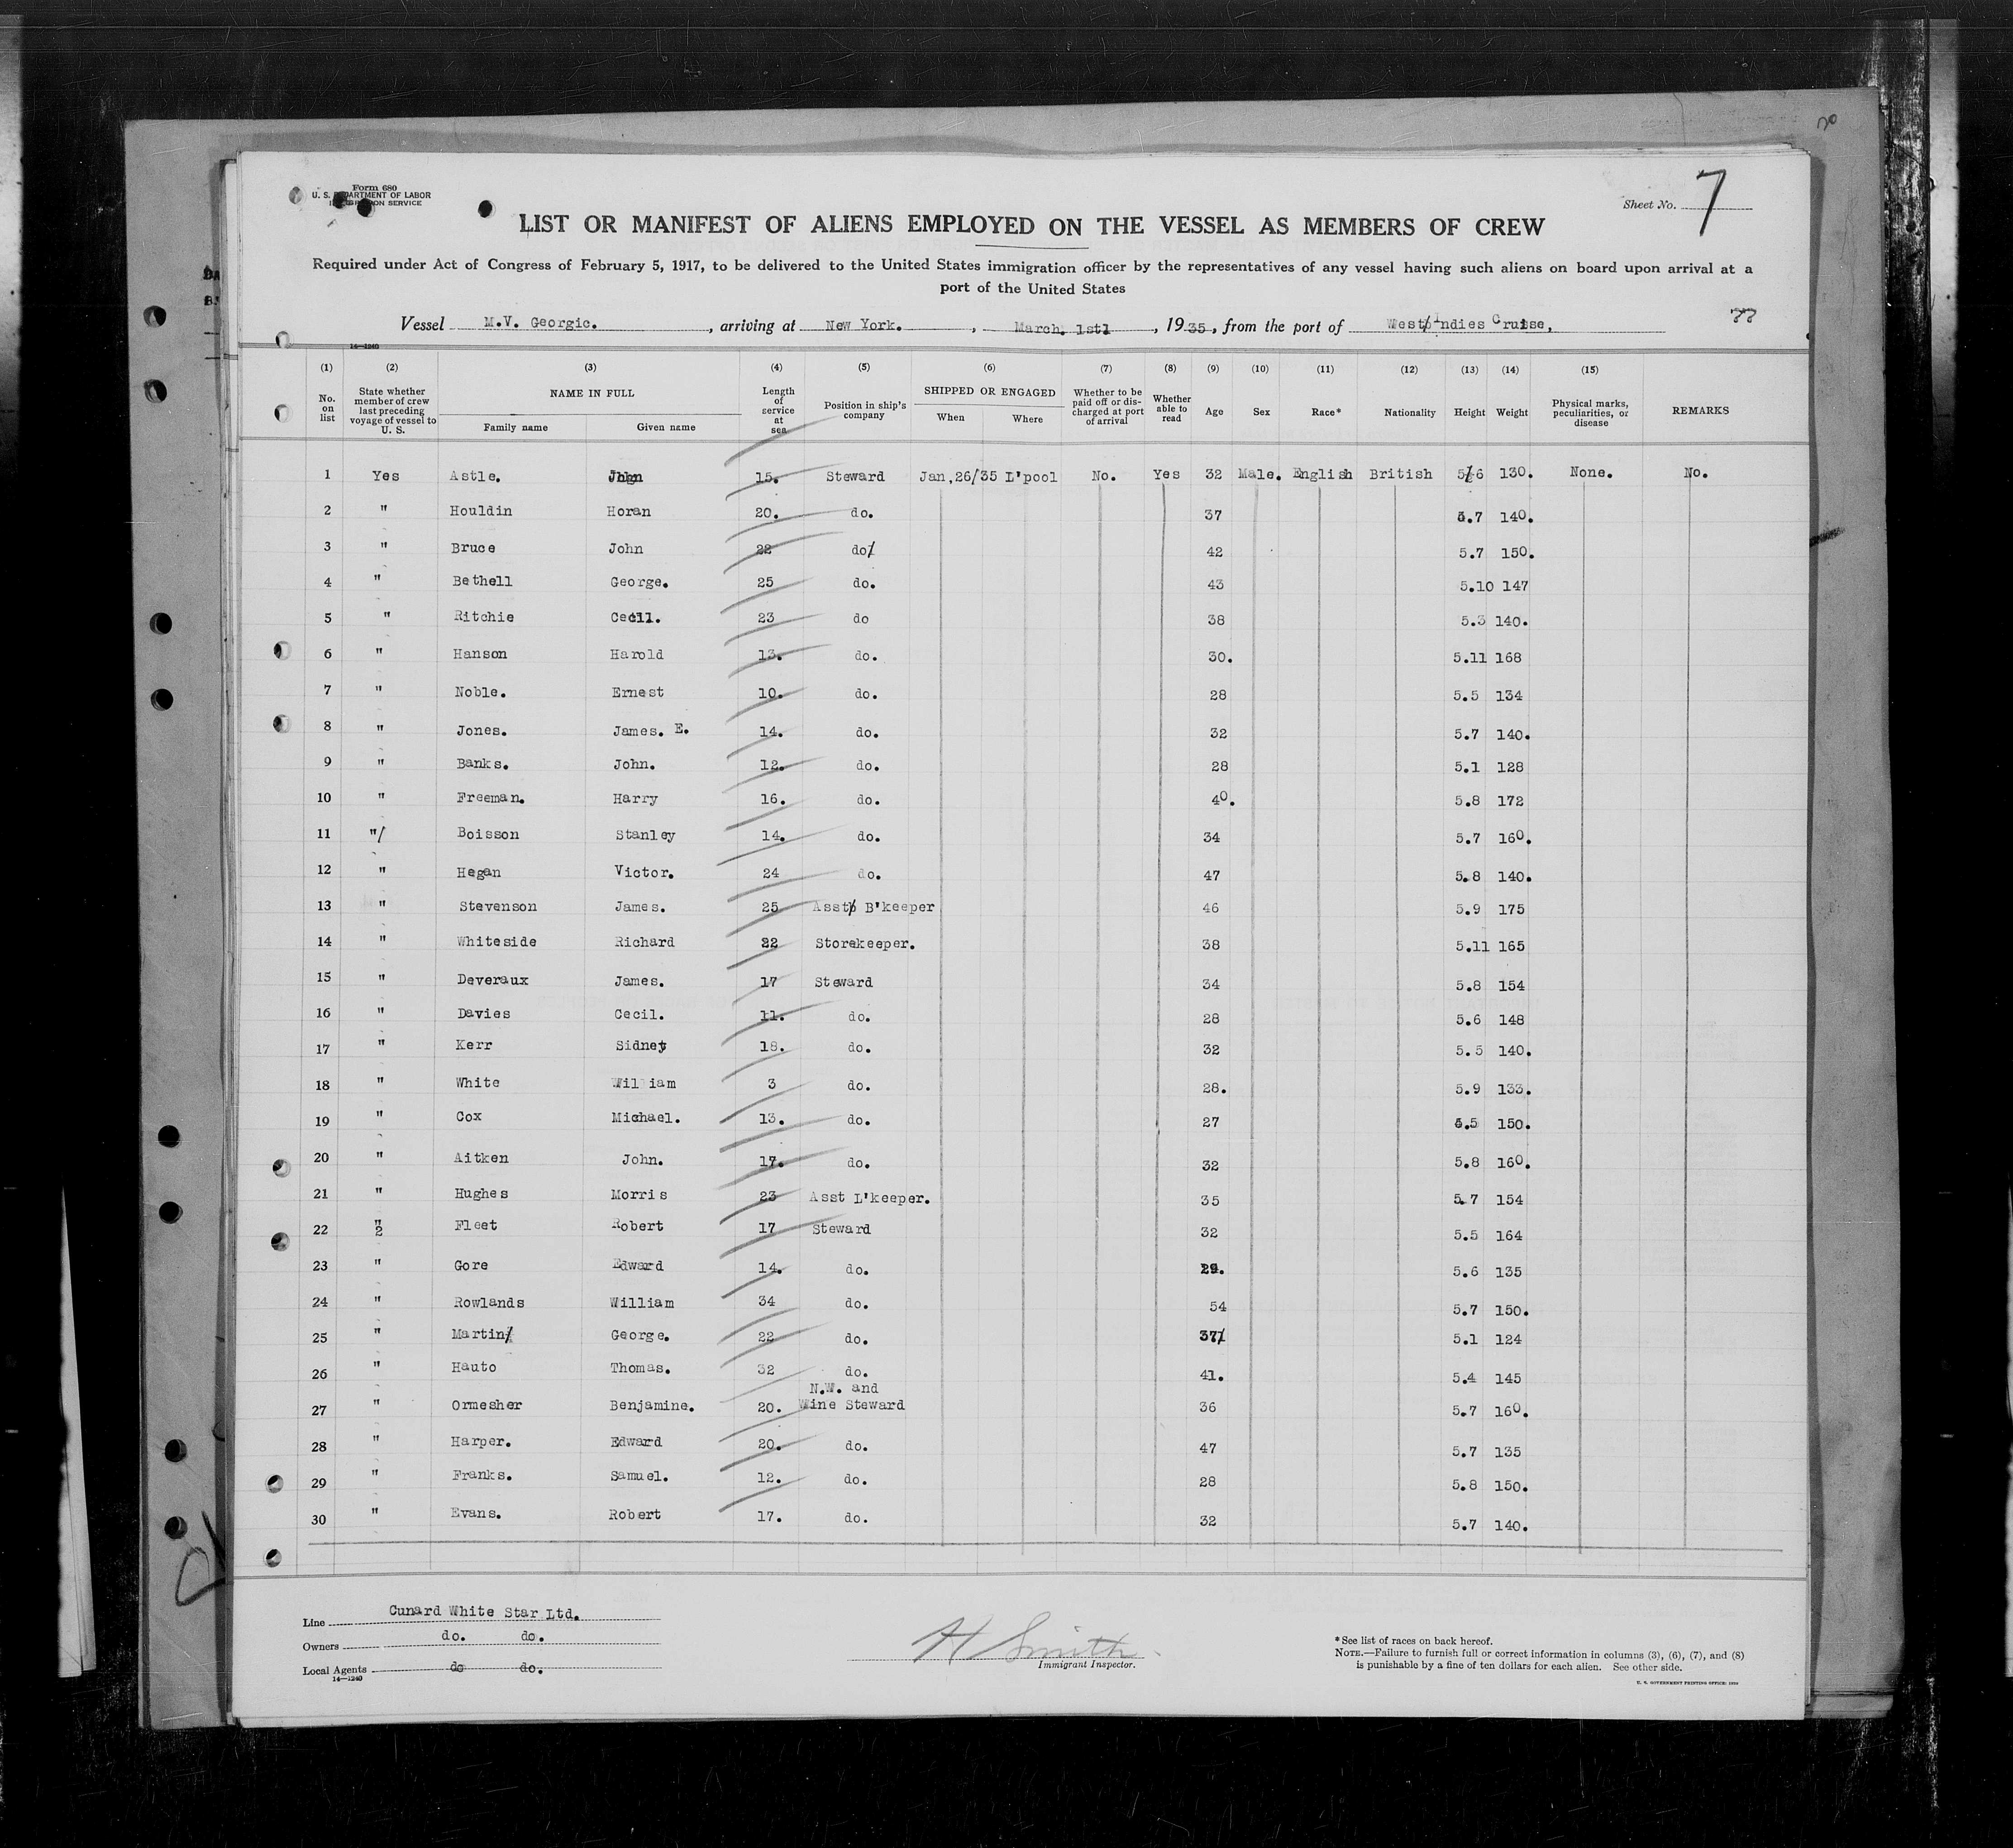 Form 680
U. S. DEPARTMENT OF LABOR
IMMIGRATION SERVICE
Sheet No. 7
LIST OR MANIFEST OF ALIENS EMPLOYED ON THE VESSEL AS MEMBERS OF CREW
Required under Act of Congress of February 5, 1917, to be delivered to the United States immigration officer by the representatives of any vessel having such aliens on board upon arrival at a
port of the United States
Vessel M.V. Georgic. , arriving at New York. , March. 1st , 1935, from the port of West Indies Cruise,
14—1240
(1) (2) (3) (4) (5) (6) (7) (8) (9) (10) (11) (12) (13) (14) (15)
No. on list State whether member of crew last preceding voyage of vessel to U. S. NAME IN FULL Length of service at sea Position in ship's company SHIPPED OR ENGAGED Whether to be paid off or discharged at port of arrival Whether able to read Age Sex Race* Nationality Height Weight Physical marks, peculiarities, or disease REMARKS
Family name Given name When Where
1 Yes Astle. John 15. Steward Jan,26/35 L'pool No. Yes 32 Male. English British 5/6 130. None. No.
2 " Houldin Horan 20. do. 37 5.7 140.
3 " Bruce John 22 do/ 42 5.7 150.
4 " Bethell George. 25 do. 43 5.10 147
5 " Ritchie Cecil. 23 do 38 5.3 140.
6 " Hanson Harold 13. do. 30. 5.11 168
7 " Noble. Ernest 10. do. 28 5.5 134
8 " Jones. James. E. 14. do. 32 5.7 140.
9 " Banks. John. 12. do. 28 5.1 128
10 " Freeman. Harry 16. do. 40. 5.8 172
11 "/ Boisson Stanley 14. do. 34 5.7 160.
12 " Hegan Victor. 24 do. 47 5.8 140.
13 " Stevenson James. 25 Asst B'keeper 46 5.9 175
14 " Whiteside Richard 22 Storekeeper. 38 5.11 165
15 " Deveraux James. 17 Steward 34 5.8 154
16 " Davies Cecil. 11. do. 28 5.6 148
17 " Kerr Sidney 18. do. 32 5.5 140.
18 " White William 3 do. 28. 5.9 133.
19 " Cox Michael. 13. do. 27 5.5 150.
20 " Aitken John. 17. do. 32 5.8 160.
21 " Hughes Morris 23 Asst L'keeper. 35 5.7 154
22 " 2 Fleet Robert 17 Steward 32 5.5 164
23 " Gore Edward 14. do. 29. 5.6 135
24 " Rowlands William 34 do. 54 5.7 150.
25 " Martin/ George. 22 do. 37/ 5.1 124
26 " Hauto Thomas. 32 do. 41. 5.4 145
N.W. and
27 " Ormesher Benjamine. 20. Wine Steward 36 5.7 160.
28 " Harper. Edward 20. do. 47 5.7 135
29 " Franks. Samuel. 12. do. 28 5.8 150.
30 " Evans. Robert 17. do. 32 5.7 140.
Line Cunard White Star Ltd.
Owners do. do.
Local Agents do do.
14—1240
H Smith
Immigrant Inspector.
*See list of races on back hereof.
NOTE.—Failure to furnish full or correct information in columns (3), (6), (7), and (8)
is punishable by a fine of ten dollars for each alien. See other side.
U. S. GOVERNMENT PRINTING OFFICE: 1930